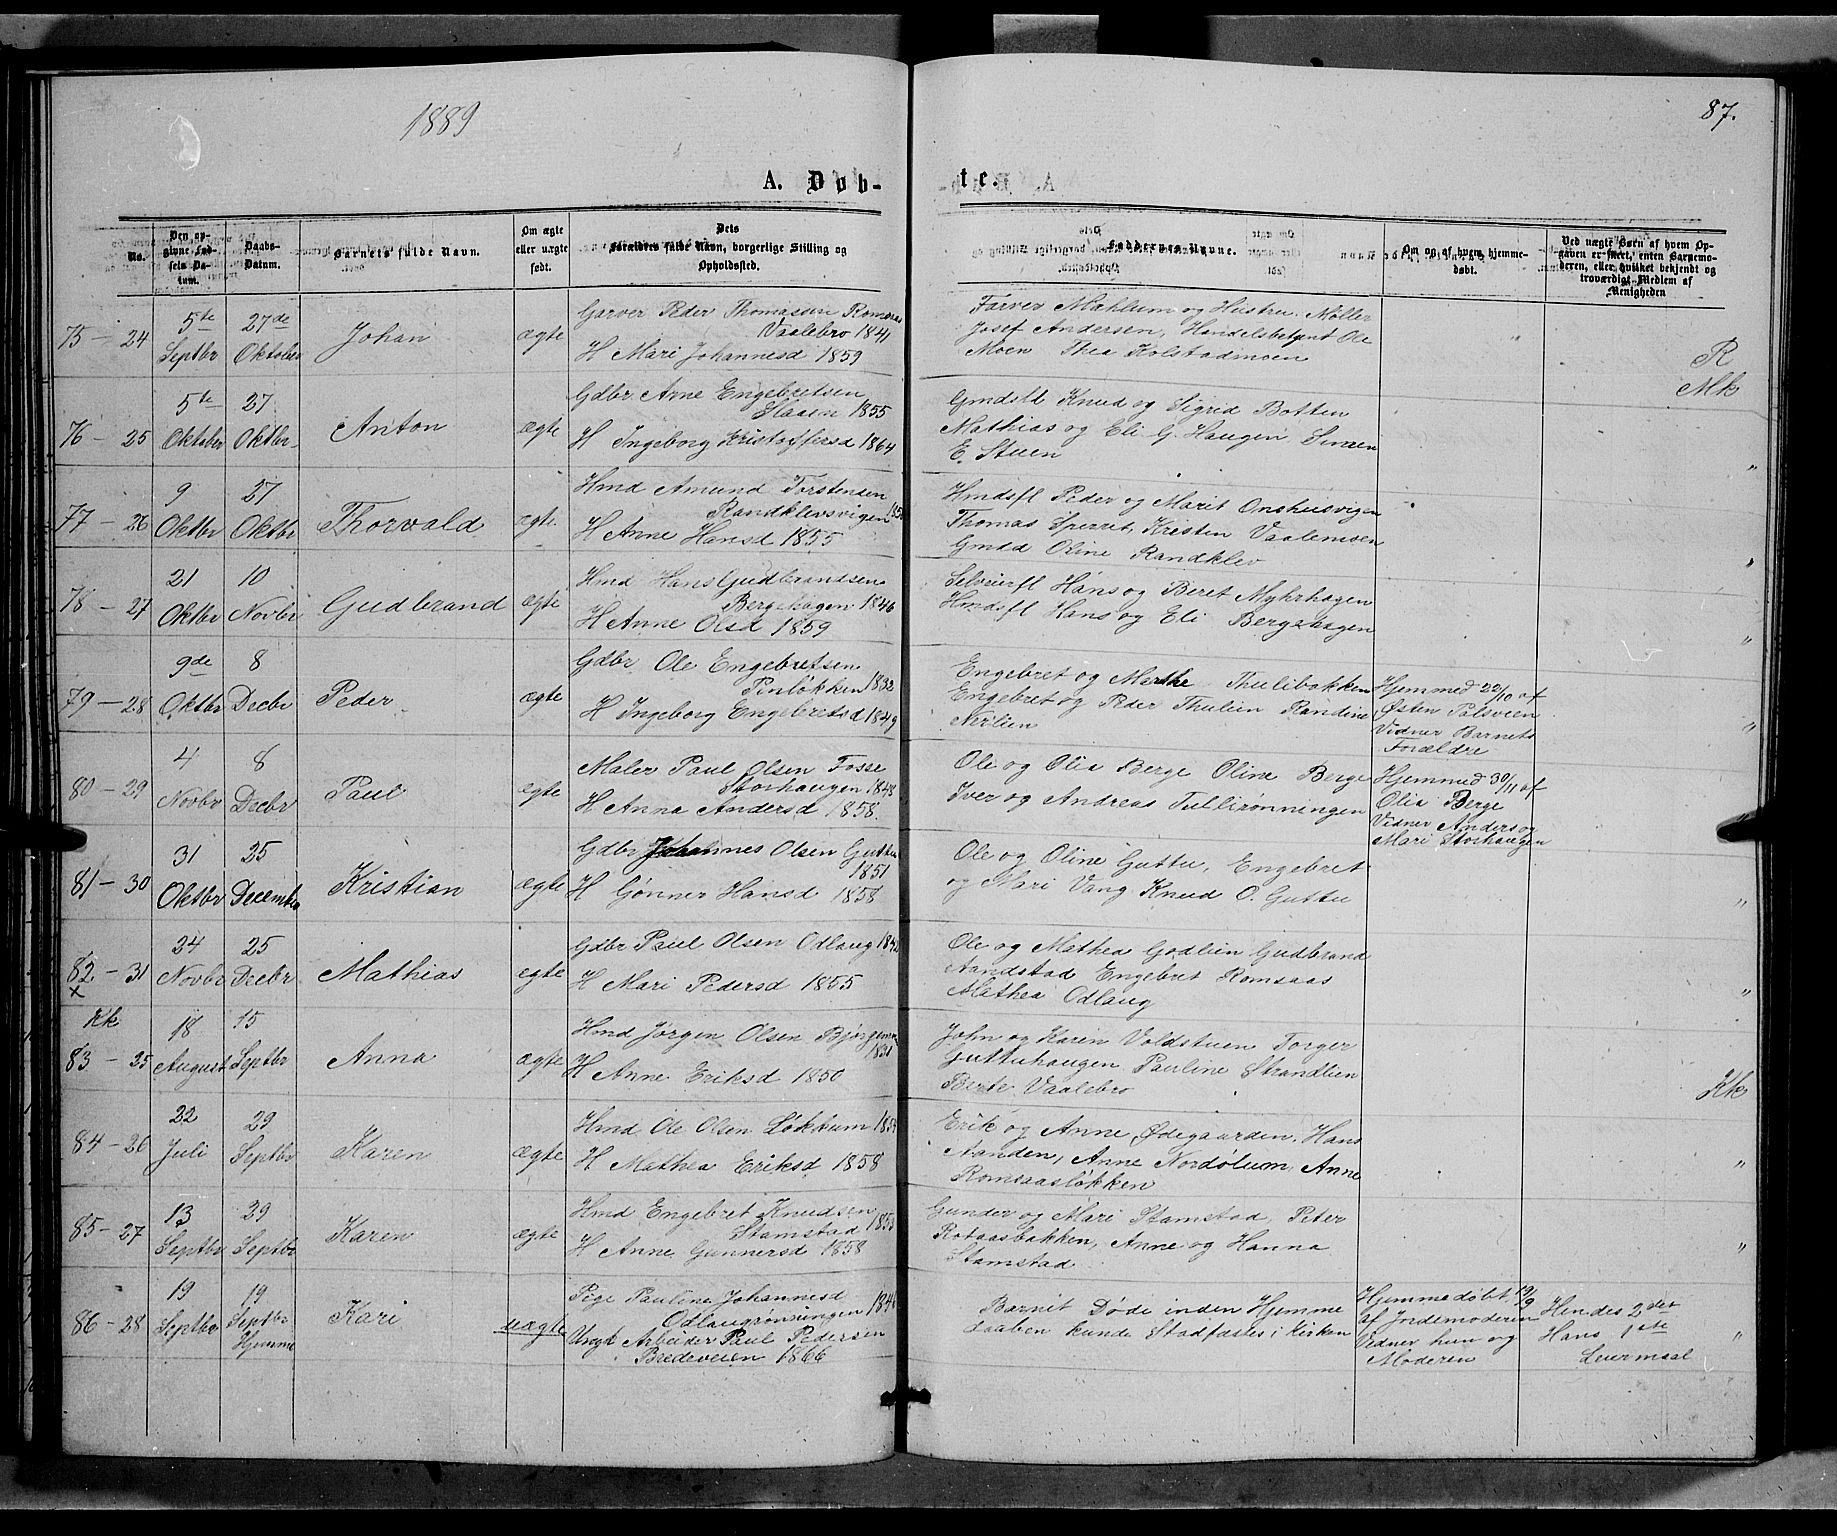 1889
87.
A. Døb-
te.
No.
Den op-
givne Fød-
sels Da-
tum.
Daabs-
Datum.
Barnets fulde Navn.
Om ægte
eller uægte
født.
Dets
Forældres fulde Navn, borgerlige Stilling og
Opholdssted.
Faddernes Navne.
Om og af hvem hjemme-
døbt.
Ved uægte Børn af hvem Op-
gaven er skeet, enten Barnemo-
deren, eller hvilket bekjendt og
troværdigt Medlem af
Menigheden
75 - 24
5te
Septbr
27de
Oktober
Johan
ægte
Garver Peder Thomassen Romsaas
Vaalebro 1841
H Mari Johannesd 1859
Farver Mahlum og Hustru. Møller
Josef Andersen, Handelsbetjent Ole
Moen Thea Kolstadmoen
R
Mk
76 - 25
5te
Oktober
27
Oktbr
Anton
ægte
Gdbr Arne Engebretsen
Haaen 1855
H Ingeborg Kristoffersd 1864
Gmdsfl Knud og Sigrid Botten
Mathias og Eli G. Haugen Simen
E. Stuen
"
77 - 26
9
Oktbr
27
Oktbr
Thorvald
ægte
Hmd Amund Torstensen
Randklevsvigen
H Anne Hansd 1855
Hmdsfl Peder og Marit Onshusvigen
Thomas Sperret, Kristen Vaalemoen
Gmdd Oline Randklev
"
78 - 27
21
Oktbr
10
Novbr
Gudbrand
ægte
Hmd Hans Gudbrandsen
Bergehagen 1846
H Anne Olsd 1859
Selveierfl Hans og Beret Myhrhagen
Hmdsfl Hans og Eli Bergehagen
"
79 - 28
9de
Oktbr
8
Decbr
Peder
ægte
Gdbr Ole Engebretsen
Pinløkken 1832
H Ingeborg Engebretsd 1849
Engebret og Marthe Thulibakken
Engebret og Peder Thulien Randine
Nerlien
Hjemmed 22/10 af
Østen Polsveen
Vidner Barnets
Forældre
"
80 - 29
4
Novbr
8
Decbr
Paul
ægte
Maler Paul Olsen Fosse
Storhaugen 1848
H Anna Andersd 1858
Ole og Olia Berge Oline Berge
Iver og Andreas Tullirønningen
Hjemmed 30/11 af
Olia Berge
Vidner Anders og
Mari Storhaugen
"
81 - 30
31
Oktbr
25
December
Kristian
ægte
Gdbr Johannes Olsen Guttu
1851
H Gønner Hansd 1858
Ole og Oline Guttu, Engebret
og Mari Vang Knud O. Guttu
"
82 - 31
x
24
Novbr
25
Decbr
Mathias
egte
Gdbr Paul Olsen Odlaug
H Mari Pedersd 1855
Ole og Mathea Godlien Gudbrand
Aandstad Engebret Romsaas
Mathea Odlaug
"
Kk
83 - 25
18
August
15
Septbr
Anna
ægte
Hmd Jørgen Olsen
1831
H Anne Eriksd 1850
John og Karen Voldstuen Torger
Guttuhaugen Pauline Strandlien
Berte Vaalebro
Kk
84 - 26
22
Juli
29
Septbr
Karen
ægte
Hmd Ole Olsen Løkkum
H Mathea Eriksd 1858
Erik og Anne Ødegaarden. Hans
Aanden, Anne Nordølum, Anne
Romsaasløkken
"
85 - 27
13
Septbr
29
Septbr
Karen
ægte
Hmd Engebret Knudsen
Stamstad 1853
H Anne Gunnersd 1858
Gunder og Mari Stamstad, Peter
Rotaasbakken, Anne og Hanna
Stamstad
"
86 - 28
19
Septbr
19
Septbr
Hjemme
Kari
uægte
Pige Pauline Johannesd
Odlaugrønningen
Ungk Arbeider Paul Pedersen
Bredeveien 1866
Barnet Døde inden Hjemme
daaben kunde Stadfæstes i Kirken
Hjemmedøbt 19/9
af Jordemoderen
Vidner hun og
Moderen
Hendes 2det
Hans 1ste
Leiermaal
"